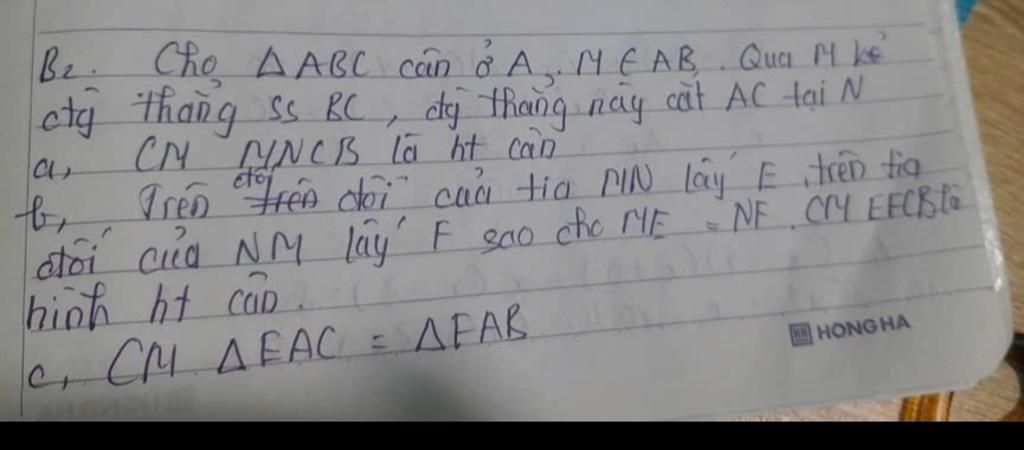 B2. Cho ΔABC cân ở A, M ∈ AB. Qua M kẻ
đtg thẳng ss BC, đtg thẳng này cắt AC tại N
a, CM MNCB là ht cân
b, Trên trên đối của tia MN lấy E, trên tia
đối của NM lấy F sao cho ME = NF. CM EFCB là
hình ht cân.
c, CM ΔEAC = ΔFAB
HONG HA